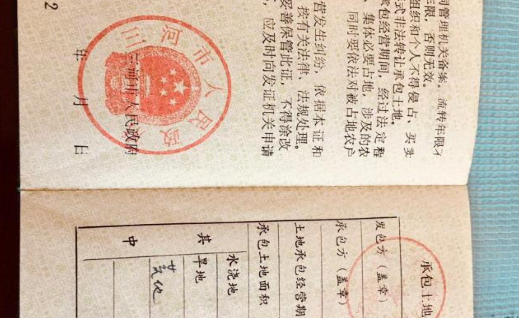 同管理机关备案，流转年限不
年限，否则无效。
组织和个人不得侵占、买卖
式非法转让承包土地。
承包经营期间，经过法定程
，集体必要占地，涉及的农
同时要依法对被占地农户
营发生纠纷，依据本证和
按有关法律、法规处理。
妥善保管此证，不得涂改
，应及时向发证机关申请
三河市人民政府
三河市人民政府
年 月 日
2
承包土地
发包方（盖章）
承包方（盖章）
土地承包经营期
承包土地面积
其中
水浇地
旱地